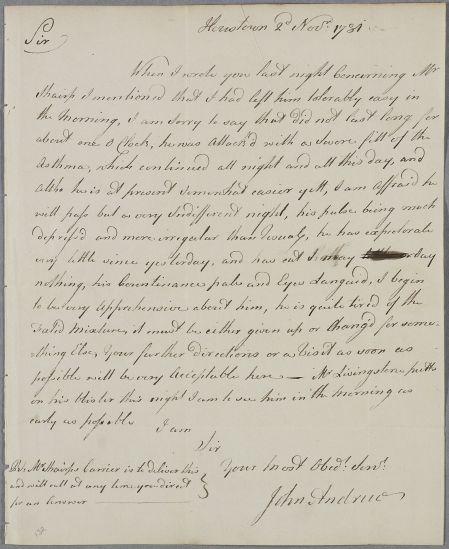 Houstoun 2d Novr. 1781
Sir
When I wrote you last night Concerning Mr
Shairp I mentioned that I had left him tolerably easy in
the morning, I am sorry to say that did not last long for
about one o Clock, he was Attack'd with a severe fitt of the
Asthma, which continued all night and all this day, and
altho he is at present somewhat easier yett, I am affraid he
will pass but a very Indifferent night, his pulse being much
depress'd and more irregular than Usuall, he has expectorate
very little since yesterday, and has eat I may say
nothing, his Countinance pale and Eyes Languid, I begin
to be very Apprehensive about him, he is quite tired of the
Fœtid Mixture, it must be either given up or Chang'd for some-
thing Else, Your further directions or a Visit as soon as
possible will be very Acceptable here — Mr Livingstone putts
on his blister this night I am to see him in the morning as
early as possible I am
Sir
Your most Obedt. Servt.
John Andrew
P.S. Mr Shairps Carrier is to deliver this
and will call at any time you direct
for an Answer